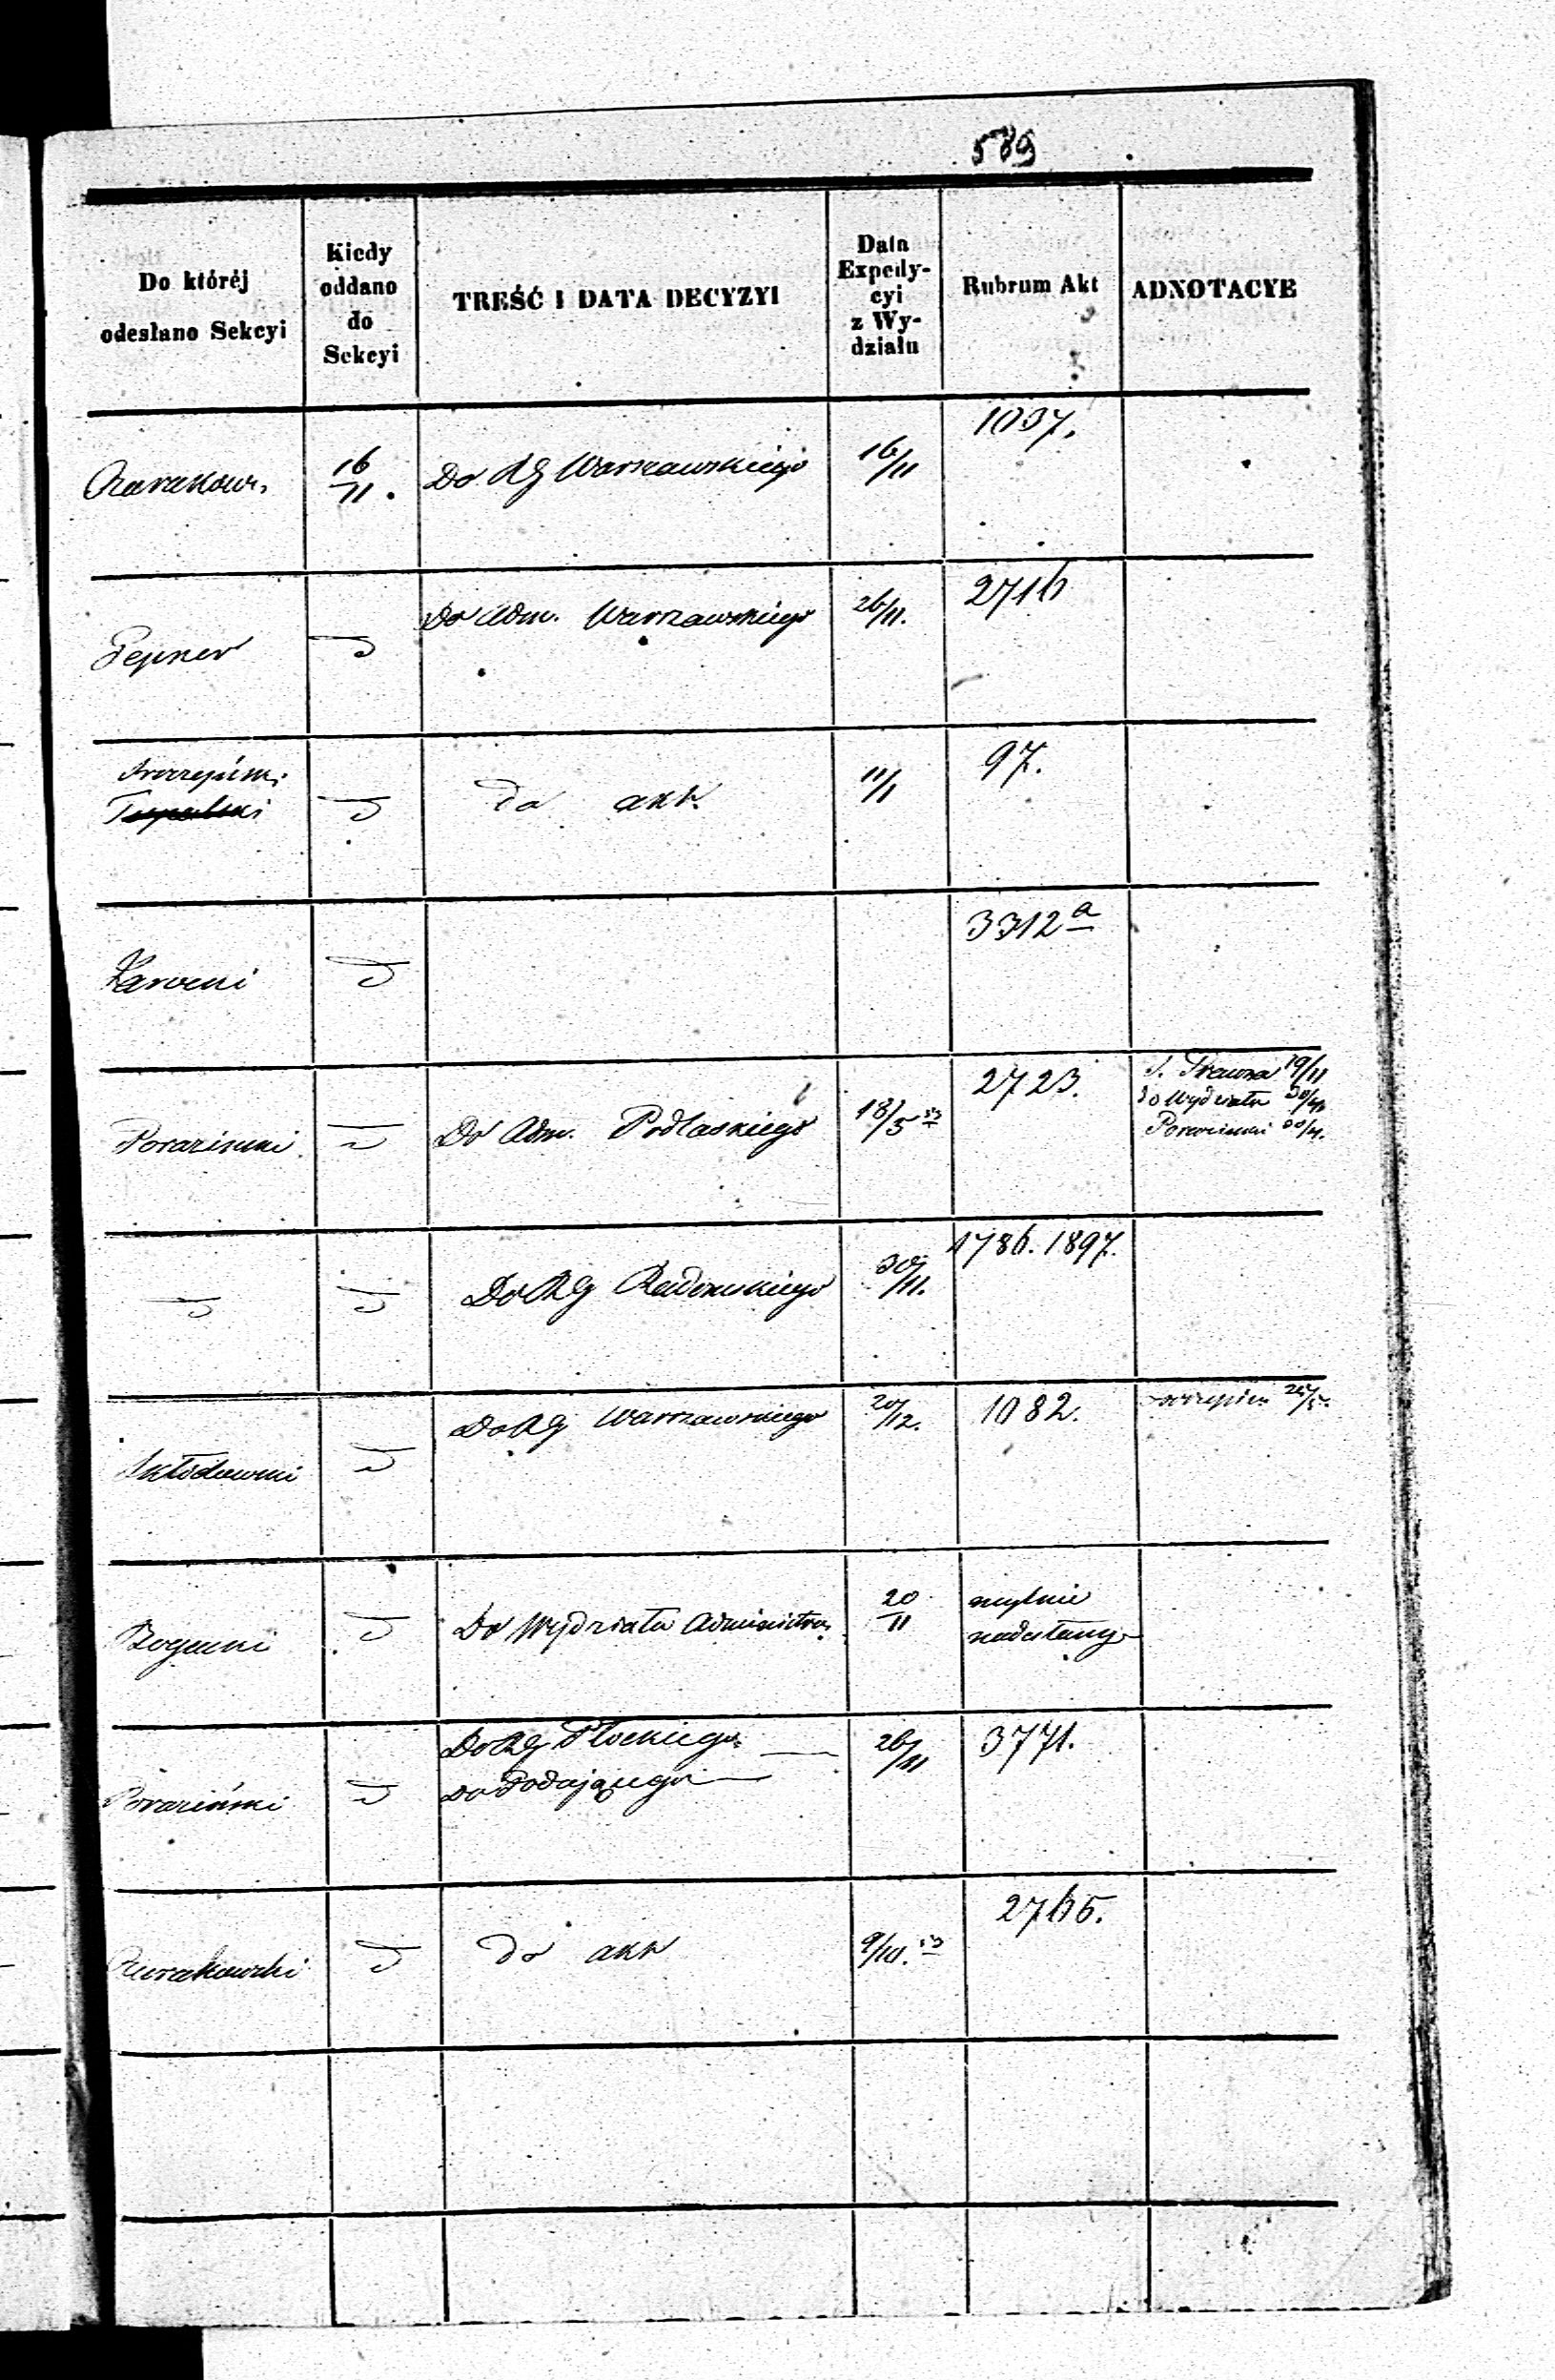 589
Do któréj
odesłano Sekcyi
Kiedy
oddano
do
Sekcyi
TREŚĆ I DATA DECYZYI
Data
Expedy-
cyi
z Wy-
działu
Rubrum Akt
ADNOTACYE
16/11.
Do RG Warszawskiego
16/11
1037.
Pepner
Do Adm. Warszawskiego
26/11.
2716
do akt.
11/1
97.
3312 a
Poraziński
Do Adm. Podlaskiego
18/5 53
2723.
19/11
do Wydziału
Poraziński
Do RG Radomskiego
30/11.
1786. 1897.
Skłodowski
Do RG Warszawskiego
20/12.
1082.
Bogucki
Do Wydziału Administra.
20/11
mylnie
nadesłany
Poraziński
Do RG Płockiego
Do Podającego
26/11
3771.
Rurakowski
do akt
9/10. 53
2765.